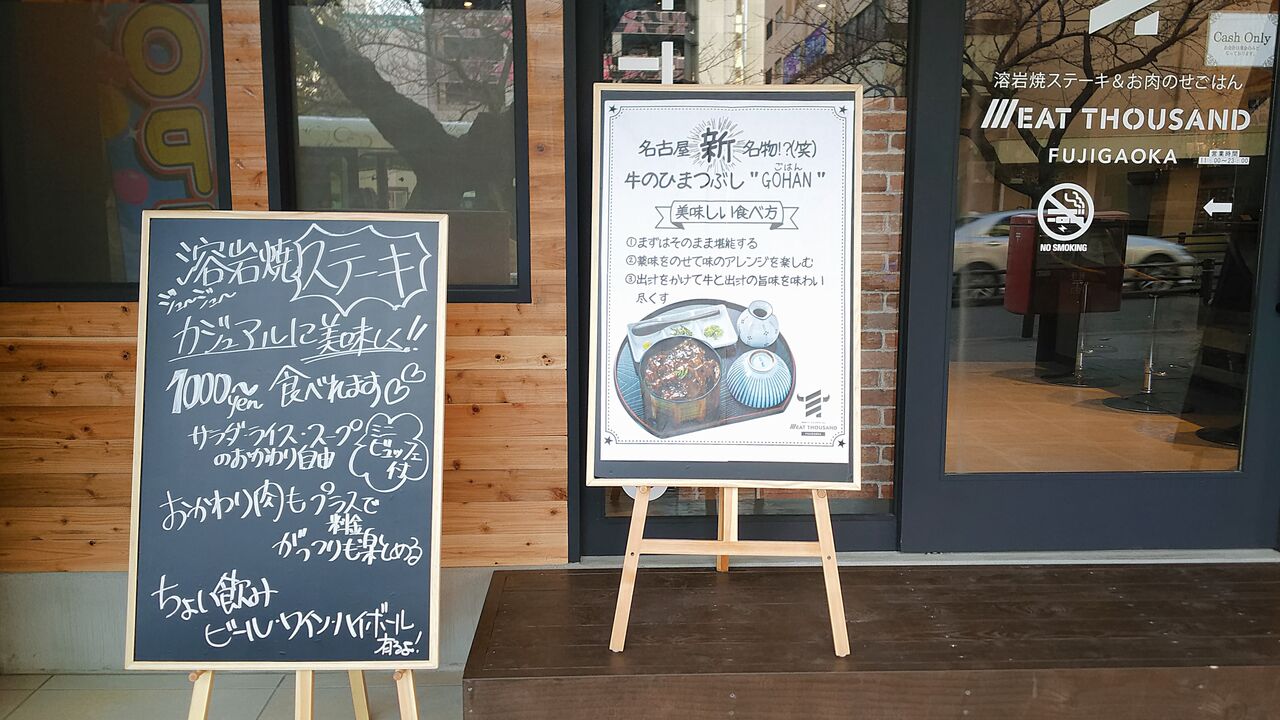 溶岩焼ステーキ
ジュージュー
カジュアルに美味しく!!
1000yen〜 食べれます♡♡
サラダ・ライス・スープ
のおかわり自由
ミニ
ビュッフェ
付
おかわり肉もプラスで
料金
がっつりも楽しめる
ちょい飲み
ビール・ワイン・ハイボール
有るよ!
名古屋 新 名物!?(笑)
ごはん
牛のひまつぶし "GOHAN"
美味しい食べ方
①まずはそのまま堪能する
②薬味をのせて味のアレンジを楽しむ
③出汁をかけて牛と出汁の旨味を味わい
尽くす
MEAT THOUSAND
Cash Only
溶岩焼ステーキ&お肉のせごはん
MEAT THOUSAND
FUJIGAOKA
営業時間
11:00〜23:00
NO SMOKING
OPE